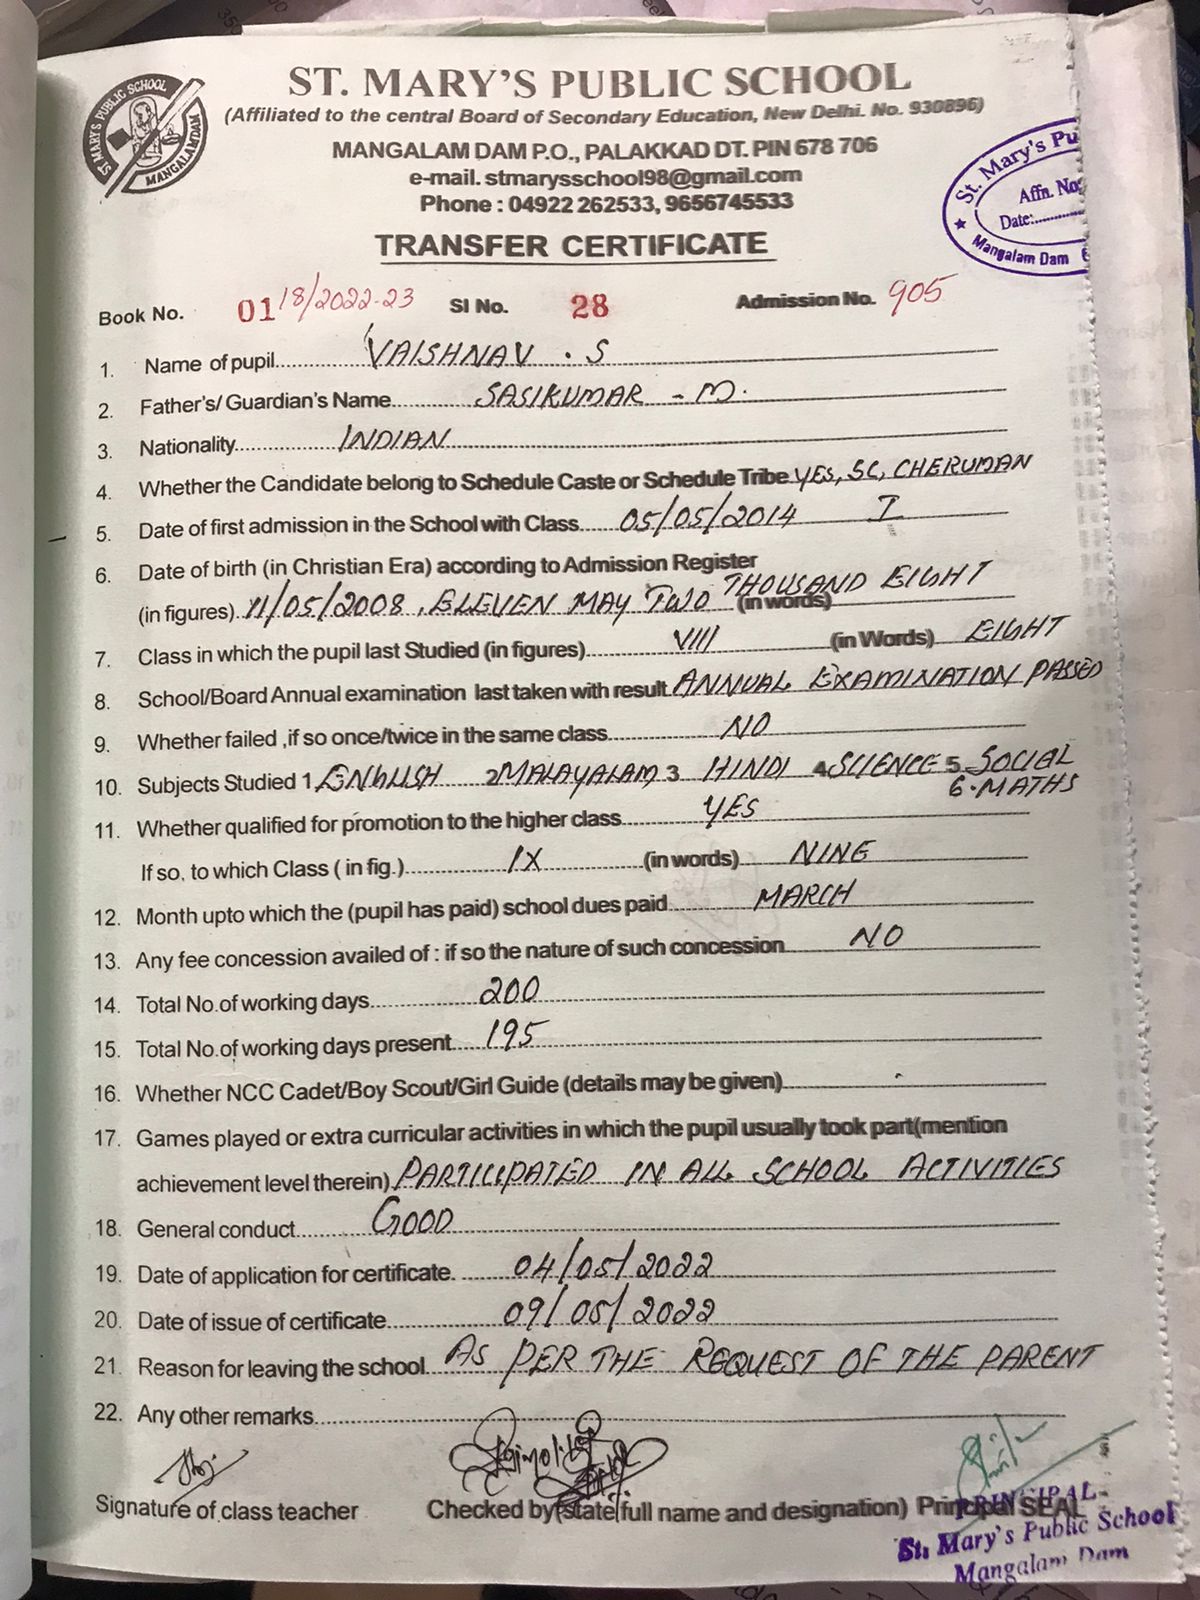 ST. MARY'S PUBLIC SCHOOL
ST. MARY'S PUBLIC SCHOOL
MANGALAMDAM
(Affiliated to the central Board of Secondary Education, New Delhi. No. 930896)
MANGALAM DAM P.O., PALAKKAD DT. PIN 678 706
e-mail. stmarysschool98@gmail.com
Phone : 04922 262533, 9656745533
St. Mary's Pu
Affn. No:
Date:..........
Mangalam Dam
TRANSFER CERTIFICATE
Book No. 01/8/2022-23 Sl No. 28 Admission No. 905
1. Name of pupil VAISHNAV . S
2. Father's/ Guardian's Name SASIKUMAR - M.
3. Nationality INDIAN
4. Whether the Candidate belong to Schedule Caste or Schedule Tribe YES, SC, CHERUMAN
5. Date of first admission in the School with Class 05/05/2014 I
6. Date of birth (in Christian Era) according to Admission Register
(in figures) 11/05/2008, ELEVEN MAY TWO THOUSAND EIGHT (in words)
7. Class in which the pupil last Studied (in figures) VIII (in Words) EIGHT
8. School/Board Annual examination last taken with result ANNUAL EXAMINATION PASSED
9. Whether failed ,if so once/twice in the same class NO
10. Subjects Studied 1 ENGLISH 2 MALAYALAM 3 HINDI 4 SCIENCE 5 SOCIAL
6. MATHS
11. Whether qualified for promotion to the higher class YES
If so, to which Class ( in fig.) IX (in words) NINE
12. Month upto which the (pupil has paid) school dues paid MARCH
13. Any fee concession availed of : if so the nature of such concession NO
14. Total No.of working days 200
15. Total No.of working days present 195
16. Whether NCC Cadet/Boy Scout/Girl Guide (details may be given)
17. Games played or extra curricular activities in which the pupil usually took part(mention
achievement level therein) PARTICIPATED IN ALL SCHOOL ACTIVITIES
18. General conduct GOOD
19. Date of application for certificate. 04/05/2022
20. Date of issue of certificate 09/05/2022
21. Reason for leaving the school AS PER THE REQUEST OF THE PARENT
22. Any other remarks
Signature of class teacher Checked by(state full name and designation) Principal SEAL
PRINCIPAL
St. Mary's Public School
Mangalam Dam